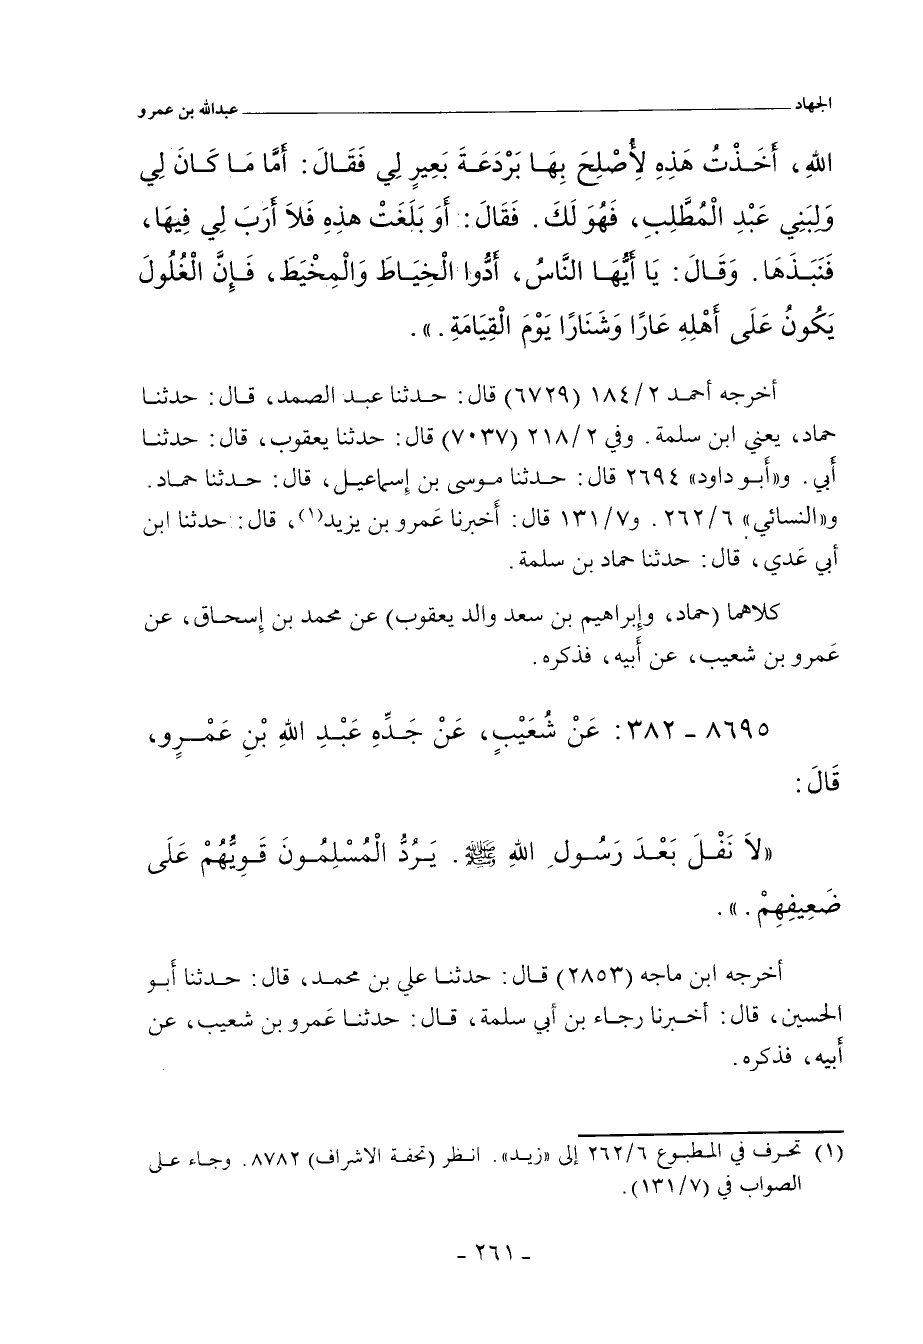 الجهاد ــــــــــــــــــــــــــــــــ عبدالله بن عمرو
اللهِ، أَخَذْتُ هَذِهِ لِأُصْلِحَ بِهَا بَرْدَعَةَ بَعِيرٍ لِي فَقَالَ: أَمَّا مَا كَانَ لِي
وَلِبَنِي عَبْدِ الْمُطَّلِبِ، فَهُوَ لَكَ. فَقَالَ: أَوَ بَلَغَتْ هذِهِ فَلاَ أَرَبَ لِي فِيهَا،
فَنَبَذَهَا. وَقَالَ: يَا أَيُّهَا النَّاسُ، أَدُّوا الْخِيَاطَ وَالْمِخْيَطَ، فَإِنَّ الْغُلُولَ
يَكُونُ عَلَى أَهْلِهِ عَارًا وَشَنَارًا يَوْمَ الْقِيَامَةِ.».
أخرجه أحمد ٢/ ١٨٤ (٦٧٢٩) قال: حدثنا عبد الصمد، قال: حدثنا
حماد، يعني ابن سلمة. وفي ٢/ ٢١٨ (٧٠٣٧) قال: حدثنا يعقوب، قال: حدثنا
أبي. و«أبو داود» ٢٦٩٤ قال: حدثنا موسى بن إسماعيل، قال: حدثنا حماد.
و«النسائي» ٦/ ٢٦٢. و٧/ ١٣١ قال: أخبرنا عَمرو بن يزيد(١)، قال: حدثنا ابن
أبي عَدي، قال: حدثنا حماد بن سلمة.
كلاهما (حماد، وإبراهيم بن سعد والد يعقوب) عن محمد بن إسحاق، عن
عَمرو بن شعيب، عن أَبيه، فذكره.
٨٦٩٥ ـ ٣٨٢: عَنْ شُعَيْبٍ، عَنْ جَدِّهِ عَبْدِ اللهِ بْنِ عَمْرٍو،
قَالَ:
«لاَ نَفْلَ بَعْدَ رَسُولِ اللهِ ﷺ. يَرُدُّ الْمُسْلِمُونَ قَوِيُّهُمْ عَلَى
ضَعِيفِهِمْ.».
أخرجه ابن ماجه (٢٨٥٣) قال: حدثنا علي بن محمد، قال: حدثنا أَبو
الحسين، قال: أخبرنا رجاء بن أبي سلمة، قال: حدثنا عَمرو بن شعيب، عن
أَبيه، فذكره.
(١) تحرف في المطبوع ٦/ ٢٦٢ إلى «زيد». انظر (تحفة الاشراف) ٨٧٨٢. وجاء على
الصواب في (٧/ ١٣١).
ـ ٢٦١ ـ